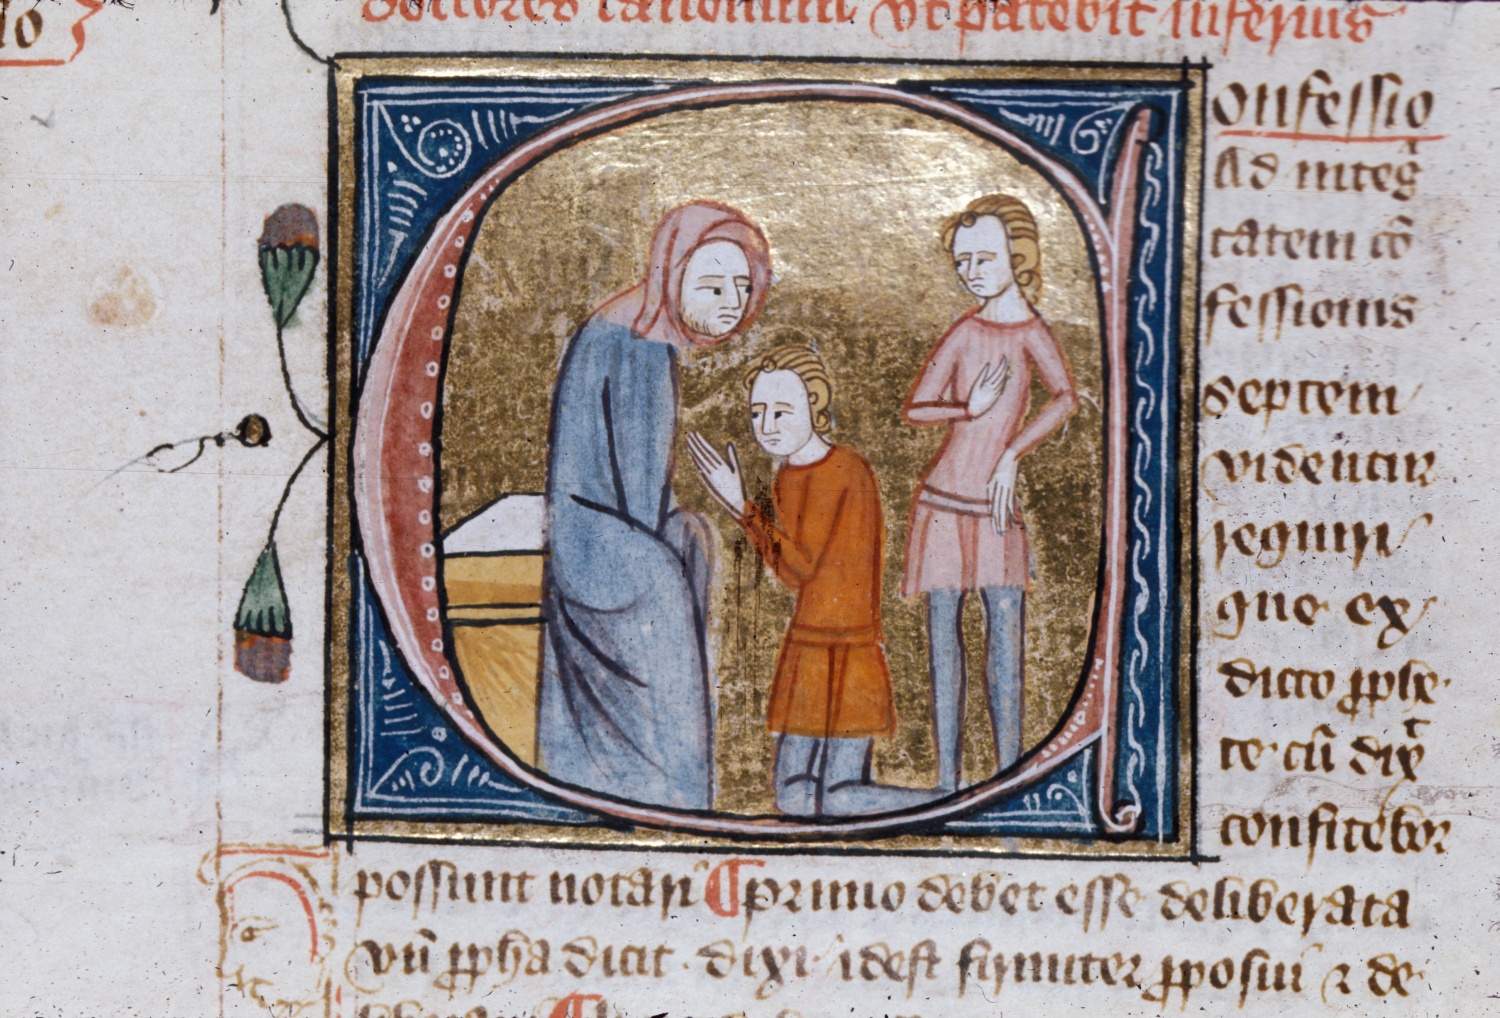 doctores rationum ut patebit inferius
Confessio
Ad integ
tatem cō
fessionis
septem
videntur
requiri
que ex
dicto ꝓphe
te cū dix
confitebor
possunt notari ¶ primo debet esse deliberata
vn̄ ꝓpha dicit · dixi · idest firmiter ꝓposui ⁊ de